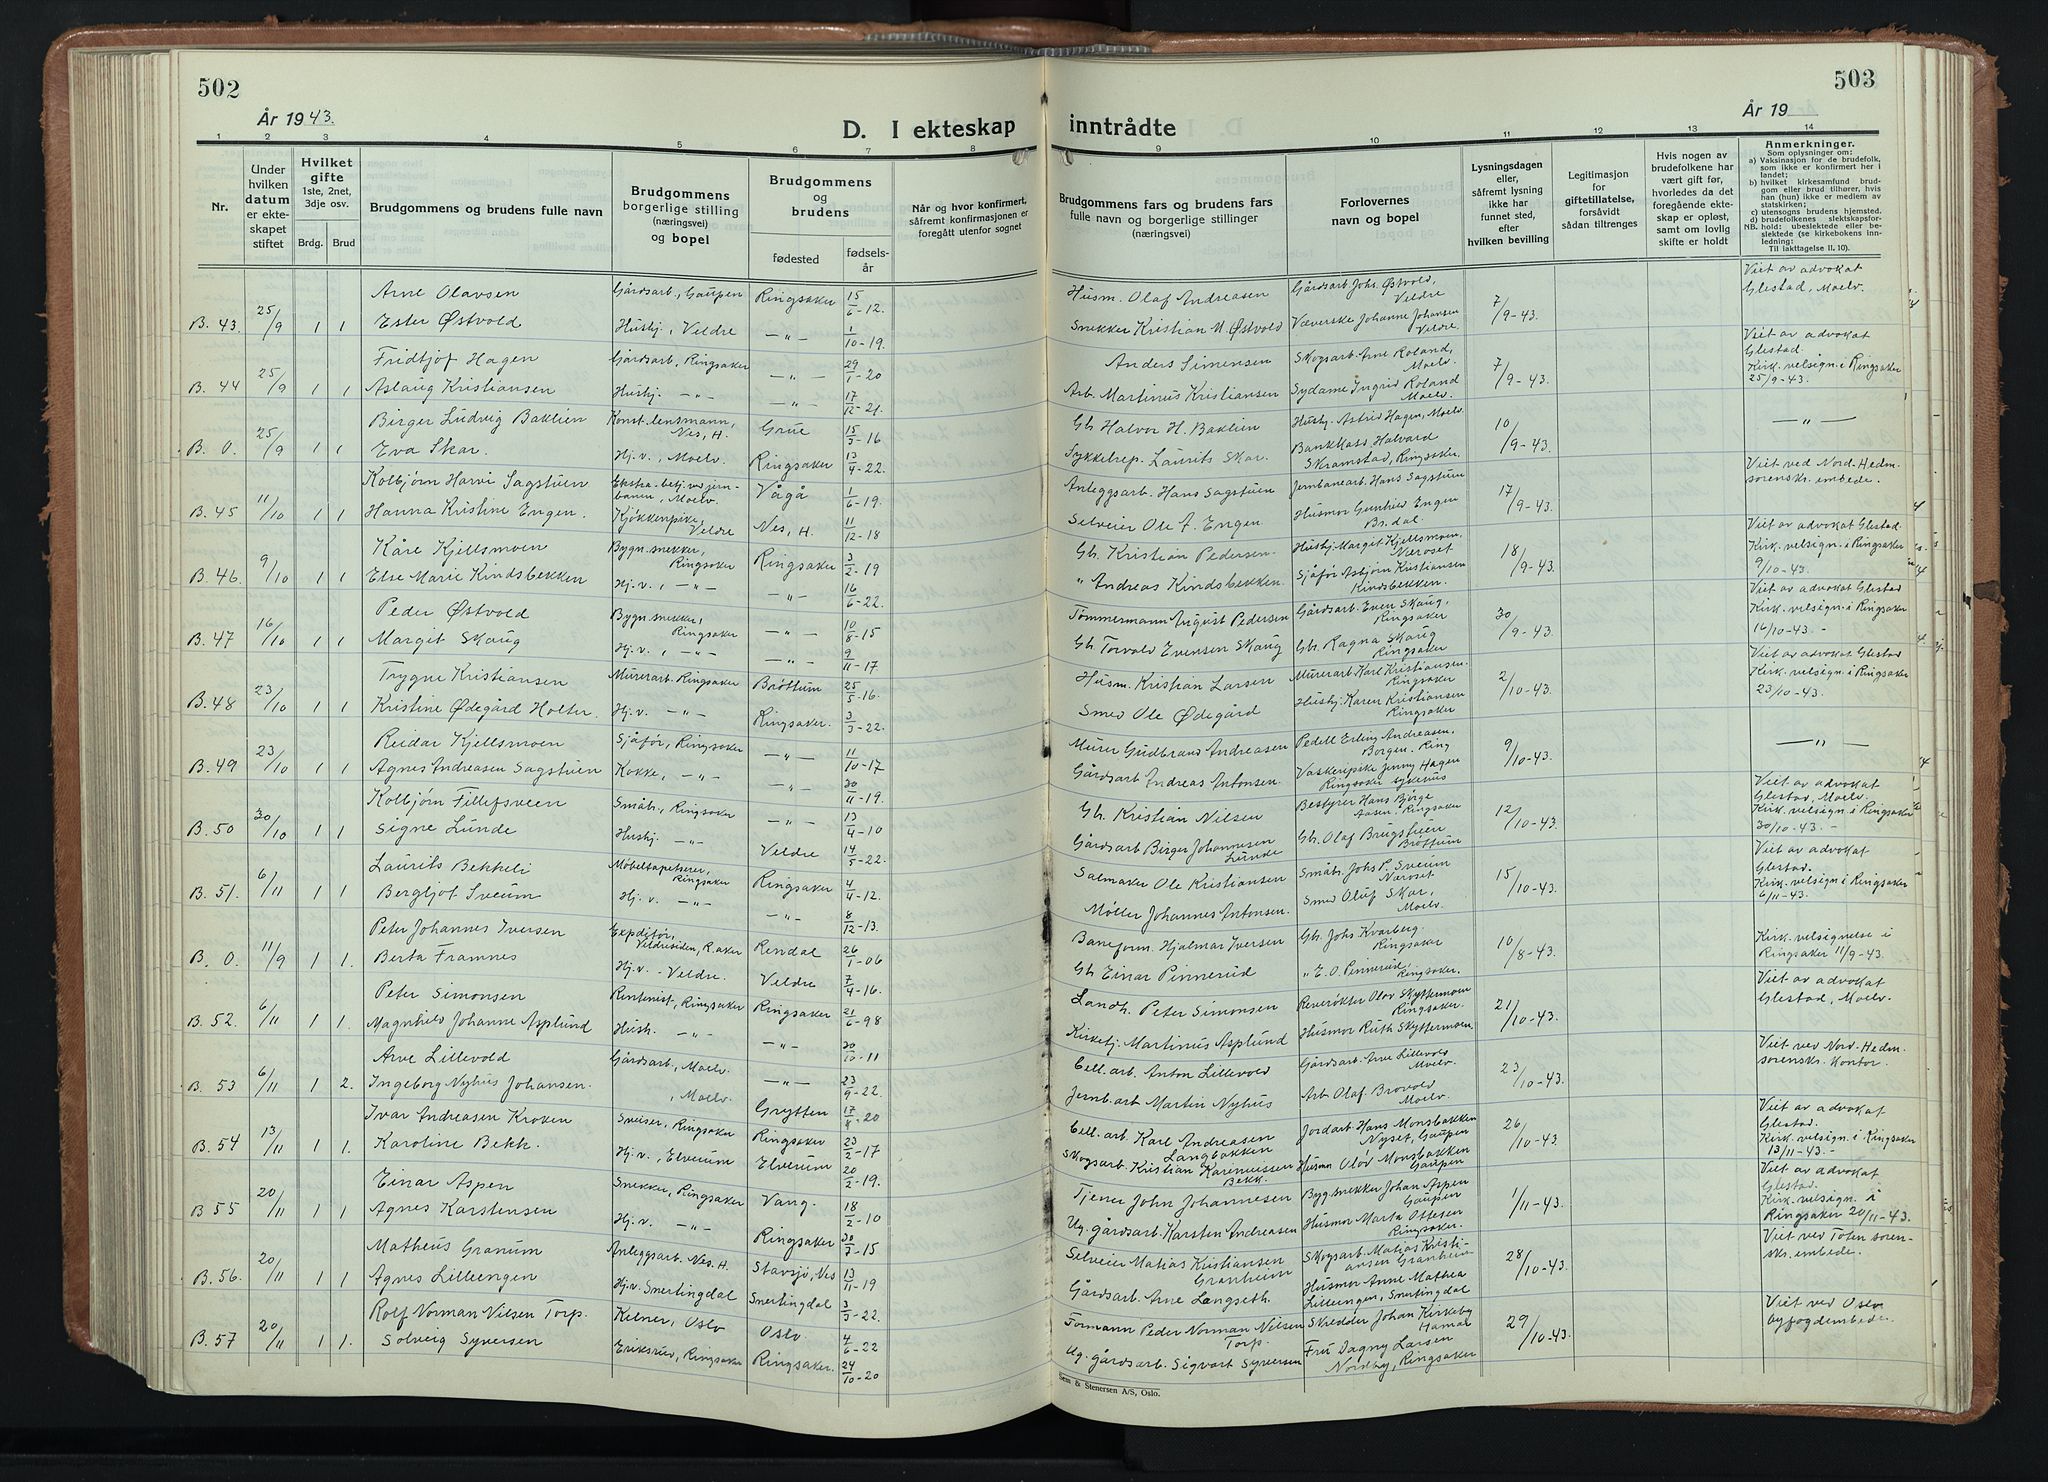 502
503
År 1943.
År 19
D. I ekteskap inntrådte
1 2 3 4 5 6 7 8 9 10 11 12 13 14
Nr.
Under hvilken datum er ekteskapet stiftet
Hvilket gifte 1ste, 2net, 3dje osv.
Brdg. Brud
Brudgommens og brudens fulle navn
Brudgommens borgerlige stilling (næringsvei) og bopel
Brudgommens og brudens
fødested
fødselsår
Når og hvor konfirmert, såfremt konfirmasjonen er foregått utenfor sognet
Brudgommens fars og brudens fars fulle navn og borgerlige stillinger (næringsvei)
Forlovernes navn og bopel
Lysningsdagen eller, såfremt lysning ikke har funnet sted, efter hvilken bevilling
Legitimasjon for giftetillatelse, forsåvidt sådan tiltrenges
Hvis nogen av brudefolkene har vært gift før, hvorledes da det foregående ekteskap er opløst, samt om lovlig skifte er holdt
Anmerkninger.
Som oplysninger om:
a) Vaksinasjon for de brudefolk, som ikke er konfirmert her i landet;
b) hvilket kirkesamfund brudgom eller brud tilhører, hvis han (hun) ikke er medlem av statskirken;
c) utensogns brudens hjemsted.
d) brudefolkenes slektskapsforhold: ubeslektede eller beslektede (se kirkebokens innledning:
NB.
Til iakttagelse II. 10).
Arne Olavsen Gårdsarb., Gaupen Ringsaker 15/6-12. Husm. Olaf Andreasen Gårdsarb. Johs. Østvold, Veldre Viet av advokat Glestad, Moelv.
B. 43. 25/9 1 1 Ester Østvold Hushj., Veldre —"— 1/10-19. Snekker Kristian M. Østvold Væverske Johanne Johansen Veldre. 7/9-43.
Fridtjof Hagen Gårdsarb., Ringsaker —"— 29/1-20 Anders Simensen Skogsarb. Arne Roland, Moelv. Viet av advokat Glestad.
B. 44 25/9 1 1 Aslaug Kristiansen Hushj. —"— —"— 17/12-21. Arb. Martinus Kristiansen Sydame Ingrid Roland Moelv. 7/9-43. Kirk. velsign. i Ringsaker 25/9-43.
Birger Ludvig Baklien Konst. lensmann, Nes, H. Grue 15/3-16 Gb. Halvor H. Baklien Hushj. Astrid Hagen, Moelv. —"—
B. 0. 25/9 1 1 Eva Skar. Hj.v., Moelv. Ringsaker 13/4-22. Sykkelrep. Laurits Skar. Bankkass. Halvard Skramstad, Ringsaker. 10/9-43.
Kolbjørn Harvi Sagstuen Ekstra-betj. ved jernbanen, Moelv. Vågå 1/6-19. Anleggsarb. Hans Sagstuen Jernbanearb. Hans Sagstuen Viet ved Nord-Hedm. sorenskr. embede.
B. 45 11/10 1 1 Hanna Kristine Engen. Kjøkkenpike, Veldre Nes, H. 11/12-18 Selveier Ole A. Engen Husmor Gunhild Engen Br.dal. 17/9-43.
Kåre Kjellsmoen Bygn.snekker, Ringsaker Ringsaker 3/2-19 Gb. Kristian Pedersen Hushj. Margit Kjellsmoen, Næroset Viet av advokat Glestad.
B. 46. 9/10 1 1 Else Marie Kindsbekken Hj.v., —"— —"— 16/6-22. " Andreas Kindsbekken. Sjåfør Asbjørn Kristiansen Kindsbekken. 18/9-43. Kirk. velsign. i Ringsaker 9/10-43.
Peder Østvold Bygn.snekker, Ringsaker —"— 10/8-15 Tømmermann August Pedersen Gårdsarb. Even Skaug, Ringsaker Viet av advokat Glestad
B. 47 16/10 1 1 Margit Skaug Hj.v., —"— —"— 9/11-17 Gb. Torvald Evensen Skaug Gb. Ragna Skaug Ringsaker 30/9-43. Kirk. velsign. i Ringsaker 16/10-43.-
Trygve Kristiansen Murerarb. Ringsaker Brøttum 25/5-16. Husm. Kristian Larsen Murerarb. Karl Kristiansen Ringsaker Viet av advokat Glestad
B. 48 23/10 1 1 Kristine Ødegård Holter. Hj.v. —"— Ringsaker. 3/3-22. Smed Ole Ødegård Hushj. Karen Kristiansen Ringsaker 2/10-43. Kirk. velsign. i Ringsaker 23/10-43.
Reidar Kjellsmoen Sjåfør, Ringsaker —"— 11/10-17 Murer Gudbrand Andreasen Pedell Erling Andreasen, Borgen, Ring —"—
B. 49 23/10 1 1 Agnes Andreasen Sagstuen Kokke, —"— —"— 30/11-19. Gårdsarb Andreas Antonsen. Vaskeripike Jenny Hagen Ringsaker sykehus 9/10-43.
Kolbjørn Fillefsveen Småbr., Ringsaker —"— 13/4-10 Gb. Kristian Nilsen Bestyrer Hans Børge Aasen, Ringsaker Viet av advokat Glestad, Moelv.
B. 50 30/10 1 1 Signe Lunde Hushj. —"— Veldre 14/5-22. Gårdsarb Birger Johannesen Lunde Gb. Olaf Brugstuen Brøttum 12/10-43. Kirk. velsign. i Ringsaker 30/10-43.-
Laurits Bekkeli Møbeltapetserer, Ringsaker Ringsaker 4/4-12. Salmaker Ole Kristiansen Småbr. Johs P. Sveum Næroset Viet av advokat Glestad.
B. 51. 6/11 1 1 Bergljot Sveum Hj.v. —"— —"— 8/12-13. Møller Johannes Antonsen. Smed Oluf Skar, Moelv. 15/10-43. Kirk. velsign. i Ringsaker 6/11-43.
Peter Johannes Iversen Expeditør, Veldresiden, R.aker Rendal 26/1-06 Baneform. Hjalmar Iversen Gb. Johs. Kvarberg Ringsaker Kirk. velsignelse i Ringsaker 11/9-43.
B. 0. 11/9 1 1. Berta Framnes Hj.v. - Veldre. Veldre 7/4-16. Gb. Einar Pinnerud " E. O. Pinnerud, Ringsaker. 10/8-43.
Peter Simonsen Rentenist, Ringsaker Ringsaker 21/6-98 Landh. Peter Simonsen Reverøkter Olov Skyttermoen Ringsaker. Viet av advokat Glestad, Moelv.
B. 52. 6/11 1 1. Magnhild Johanne Asplund Hush. —"— —"— 30/10-11 Kirketj. Martinus Asplund Husmor Ruth Skyttermoen 21/10-43.
Arve Lillevold Gårdsarb., Moelv. —"— 23/9-22. Cell.arb. Anton Lillevold Gårdsarb. Arne Lillevold Moelv. Viet ved Nord-Hedm. sorenskr. kontor.
B. 53 6/11 1 2. Ingeborg Nyhus Johansen. , Moelv. Grytten 17/8-20 Jernb.arb Martin Nyhus Arb Olaf Brovold Moelv. 23/10-43.
Ivar Andreasen Kroken Sveiser, Ringsaker Ringsaker 23/2-17 Cell.arb. Karl Andreasen Langbakken Jordarb. Hans Monsbakken Nyset, Gaupen Viet av advokat Glestad.
B. 54 13/11 1 1. Karoline Bekk. Hj.v., Elverum Elverum 20/2-19. Skogsarb. Kristian Karenussen Bekk. Husmor Olov Monsbakken Gaupen 26/10-43. Kirk. velsign. i Ringsaker 13/11-43.-
Einar Aspen Snekker, Ringsaker Vang. 18/2-10 Tjener John Johannesen Byg.snekker Johan Aspen Gaupen Viet av advokat Glestad.
B 55 20/11 1 1 Agnes Karstensen Hj.v. —"— Ringsaker 30/3-15 Ug. gårdsarb. Karsten Andreasen Husmor Marta Ottesen Ringsaker. 1/11-43. Kirk. velsign. i Ringsaker 20/11-43.
Matheus Granum Anleggsarb. Nes. H. Stavsjø, Nes 13/11-19 Selveier Matias Kristiansen Granheim Skogsarb. Matias Kristiansen Granheim Viet ved Toten sorenskr. embede.
B. 56. 20/11 1 1 Agnes Lilleengen Hj.v. Snertingdal Snertingdal 3/3-22. Gårdsarb. Arne Langseth. Husmor Anne Mathea Lilleengen, Snertingdal 28/10-43.
Rolf Norman Nilsen Torp. Kelner, Oslo Oslo 4/6-22 Formann Peder Norman Nilsen Torp. Skredder Johan Kirkeby Hamar Viet ved Oslo byfogdembede.
B. 57 20/11 1 1. Solveig Syversen Eriksrud, Ringsaker Ringsaker. 24/10-20 Ug. gårdsarb. Sigvart Syversen Fru Dagny Larsen Nordby, Ringsaker 29/10-43.
Sem & Stenersen A/S, Oslo.